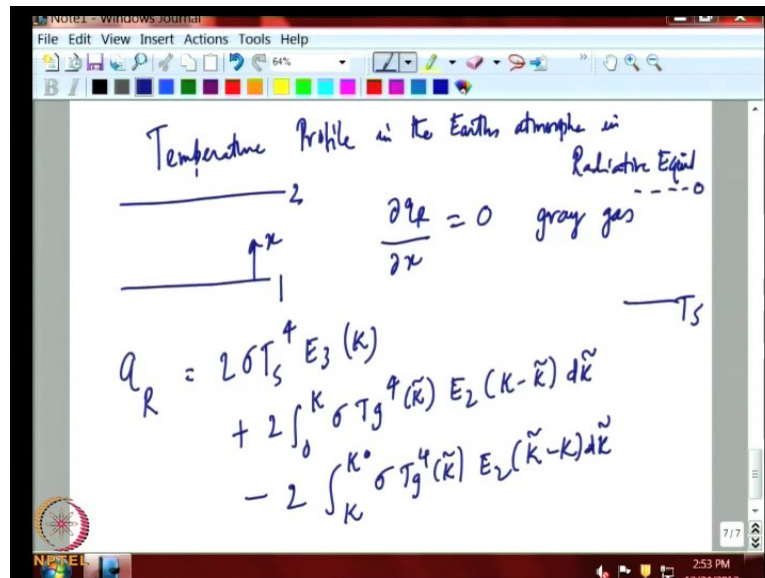 Note1 - Windows Journal
File Edit View Insert Actions Tools Help
64%
B I
Temperature Profile in the Earths atmosphe in
Radiative Equil
2
0
∂q_R/∂x = 0 gray gas
x
1
T_S
q_R = 2σT_S^4 E_3(K)
+ 2 ∫_0^K σ Tg^4(K̃) E_2(K-K̃) dK̃
- 2 ∫_K^{K0} σ Tg^4(K̃) E_2(K̃-K) dK̃
7/7
NPTEL
2:53 PM